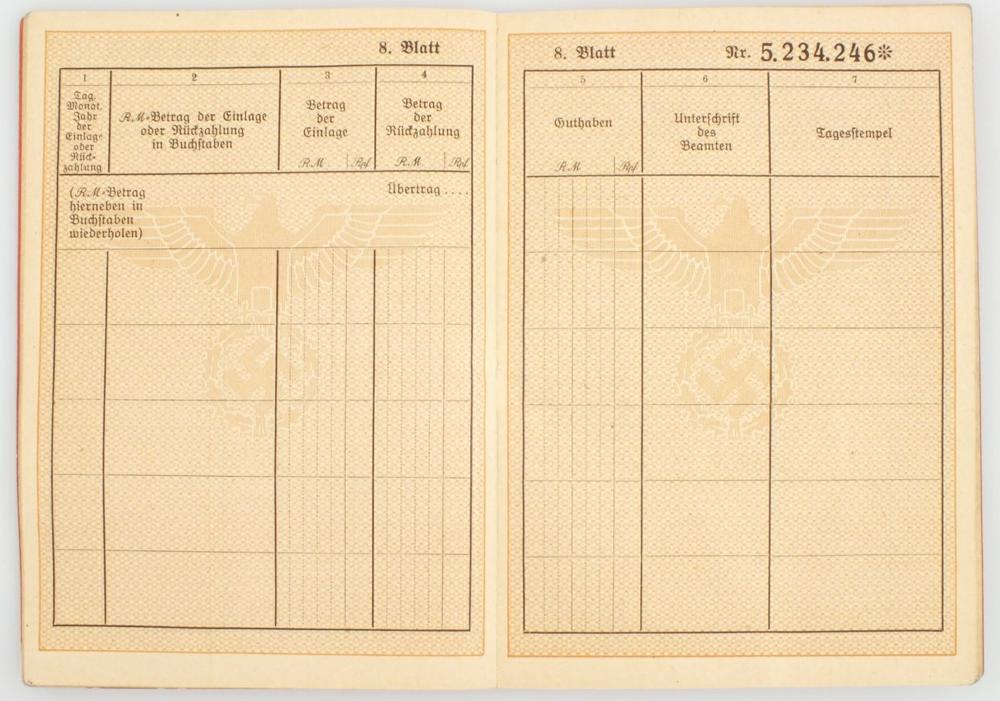 8. Blatt
1
2
3
4
Tag,
Monat,
Jahr
der
Einlage
oder
Rück-
zahlung
RM-Betrag der Einlage
oder Rückzahlung
in Buchstaben
Betrag
der
Einlage
RM Rpf
Betrag
der
Rückzahlung
RM Rpf
(RM-Betrag
hierneben in
Buchstaben
wiederholen)
Übertrag....
8. Blatt Nr. 5.234.246*
5
6
7
Guthaben
RM Rpf
Unterschrift
des
Beamten
Tagesstempel